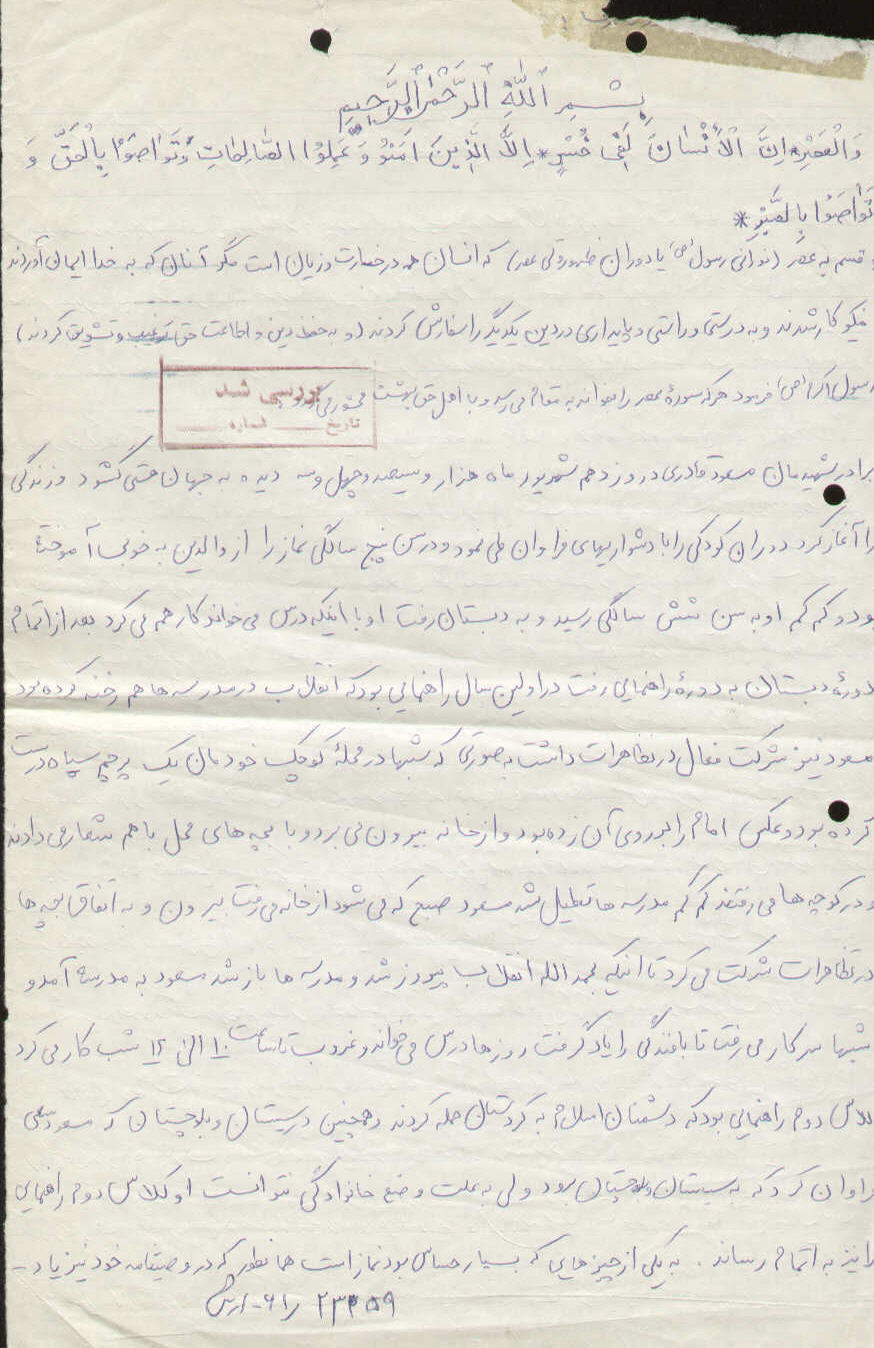 بِسْمِ اللَّهِ الرَّحْمنِ الرَّحِیمِ
وَالْعَصْرِ* اِنَّ الْاَنْسانَ لَفی خُسْرٍ* اِلاَّ الَّذینَ امَنُوْ وَ عَمِلوُا الصّالِحاتِ وَتَواصَوْا بِالْحَقِّ وَ
تَواصَوْا بِالصَّبْرِ*
قسم به عصر (نورانی رسول (ص) یا دوران ظهور ولی عصر) که انسان همه در خسارت و زیان است مگر آنان که به خدا ایمان آوردند
نیکو کار شدند و به درستی و راستی و پایداری در دین یکدیگر را سفارش کردند (و به حفظ دین و اطاعت حق ترغیب و تشویق کردند)
رسول اکرم (ص) فرمود هر که سورهٔ عصر را بخواند به مقام می رسد و با اهل حق بهشت محشور می گردد
بررسی شد
تاریخ شماره
برادر شهیدمان مسعود قادری در روز دهم شهریور ماه هزار و سیصد و چهل و سه دیده به جهان هستی گشود و زندگی
را آغاز کرد دوران کودکی را با دشواریهای فراوان طی نمود و در سن پنج سالگی نماز را از والدین به خوبی آموخته
بود و کم کم او به سن شش سالگی رسید و به دبستان رفت او با اینکه درس می خواند کار هم می کرد بعد از اتمام
دورهٔ دبستان به دورهٔ راهنمایی رفت در اولین سال راهنمایی بود که انقلاب در مدرسه ها هم رخنه کرده بود
مسعود نیز شرکت فعال در تظاهرات داشت به صورتی که شبها در محلهٔ کوچک خودمان یک پرچم سیاه درست
کرده بود و عکس امام را بر روی آن زده بود و از خانه بیرون می برد و با بچه های محل با هم شعار می دادند
و در کوچه ها می رفتند کم کم مدرسه ها تعطیل شد مسعود صبح که می شود از خانه می رفت بیرون و به اتفاق بچه ها
در تظاهرات شرکت می کرد تا اینکه بحمد الله انقلاب پیروز شد و مدرسه ها باز شد مسعود به مدرسه آمد و
شبها سر کار می رفت تا بافندگی را یاد گرفت روزها درس می خواند و غروب تا ساعت ۱۰ الی ۱۲ شب کار می کرد
کلاس دوم راهنمایی بود که دشمنان اسلام به کردستان حمله کردند و همچنین در سیستان و بلوچستان که مسعود سعی
فراوان کرد که به سیستان و بلوچستان برود ولی به علت وضع خانوادگی نتوانست او کلاس دوم راهنمایی
را نیز به اتمام رساند. به یکی از چیزهایی که بسیار حساس بود نماز است همانطور که در وصیتنامه خود نیز یاد -